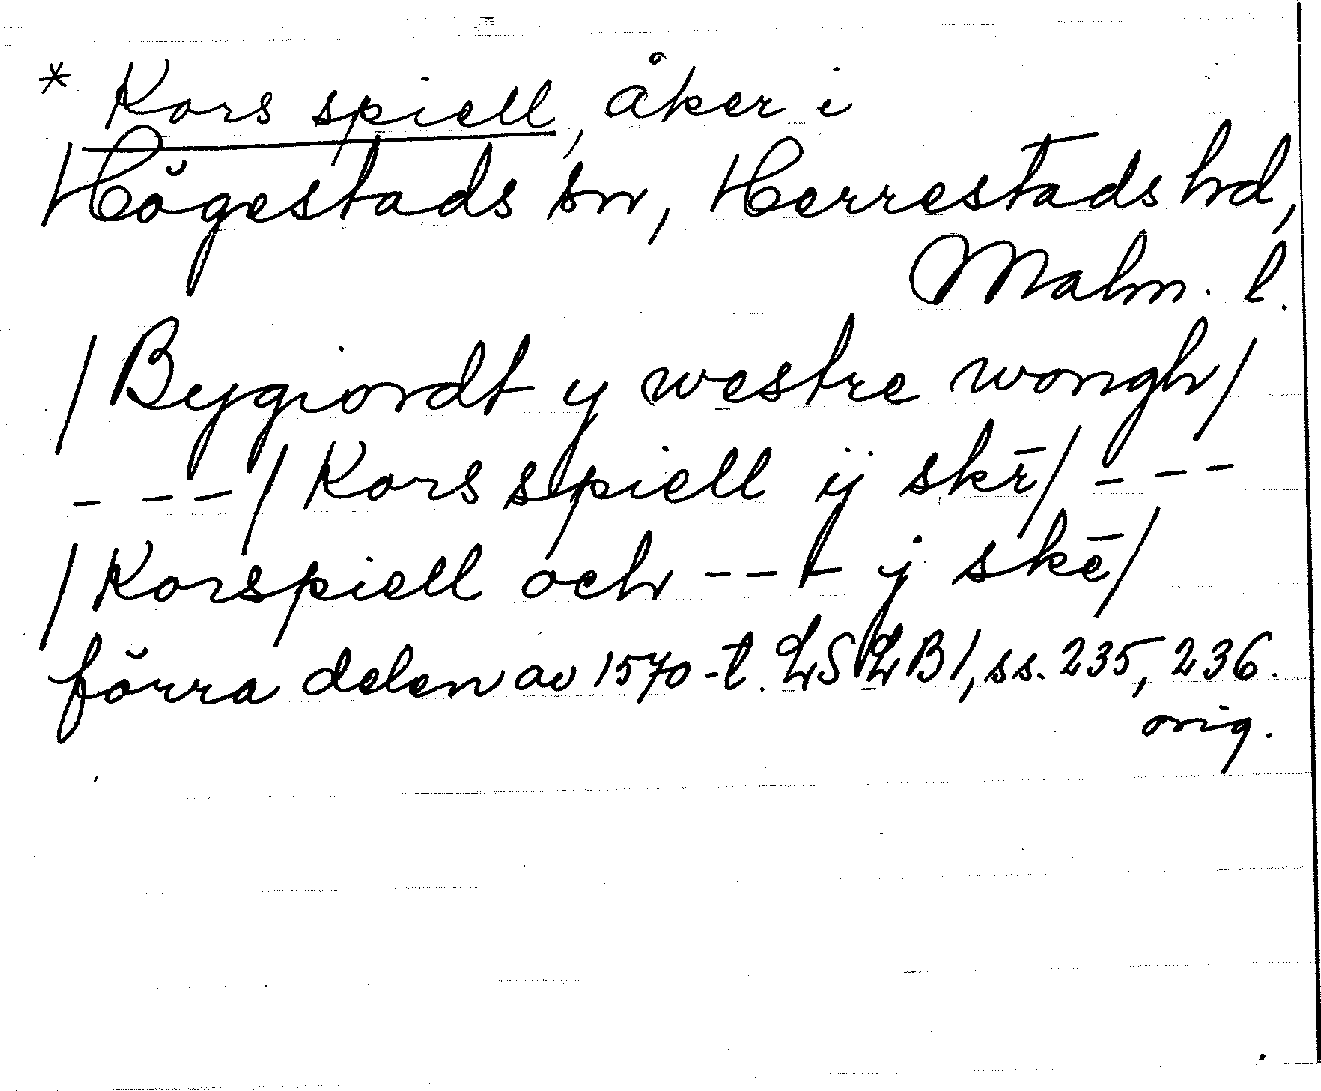 * Kors spiell, åker i
Högestads sn, Herrestads hd,
Malm. l.
/Bygiordt y westre wongh/
- - - / Kors spiell ij skē/ - - -
/Korspiell och - - t j skē/
förra delen av 1570-t. LSLB1, ss. 235, 236.
orig.